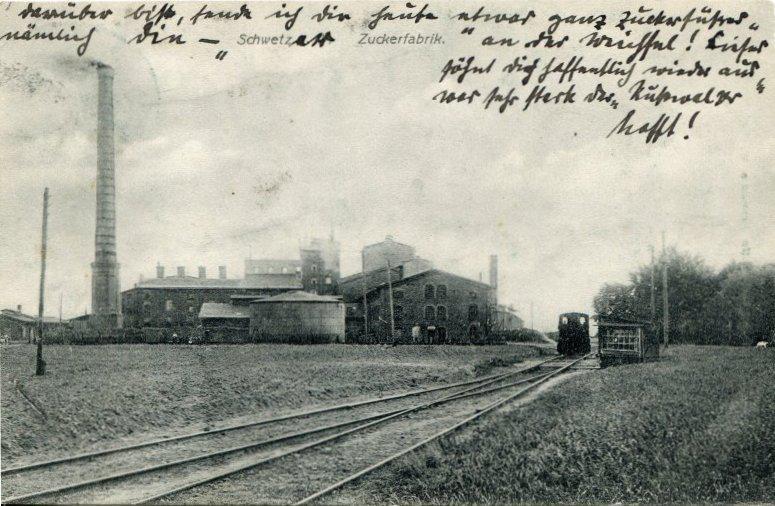 darüber bist, sende ich dir heute etwas ganz Zuckersüßes,
nämlich die — "Schwetzer Zuckerfabrik." "an der Weichsel! Dieser
söhnt dich hoffentlich wieder aus,
was sehr stark der
hofft!